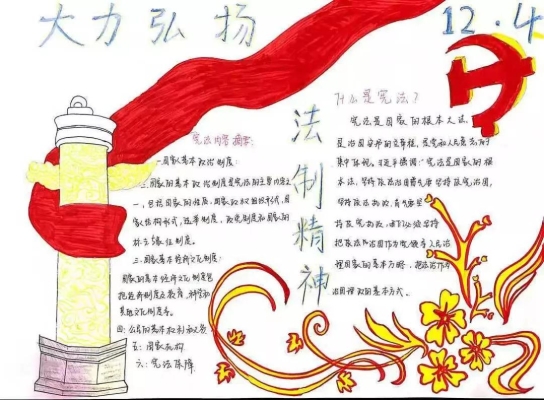 大力弘扬
12·4
法制精神
宪法内容摘要:
一国家基本政治制度:
二.国家的基本政治制度是宪法的主要内容之
一,包括国家的性质,国家政权组织形式,国
家结构形式,选举制度,政党制度和国家的
制度.
三.国家基本经济文化制度:
国家的基本经济文化制度包
括经济制度及教育,科学和
其他文化制度等.
四:公民的基本权利和义务
五:国家机构
六:宪法保障
什么是宪法?
宪法是国家的根本大法,
是治国安邦的总章程,是党和人民意志的
集中体现。强调:宪法是国家的根
本法,坚持依法治国首先要坚持依宪治国,
坚持依法执政,首先要坚
持依宪执政,我们必须坚持
把依法治国作为党领导人民治
理国家的基本方略,把法治作为
治国理政的基本方式。